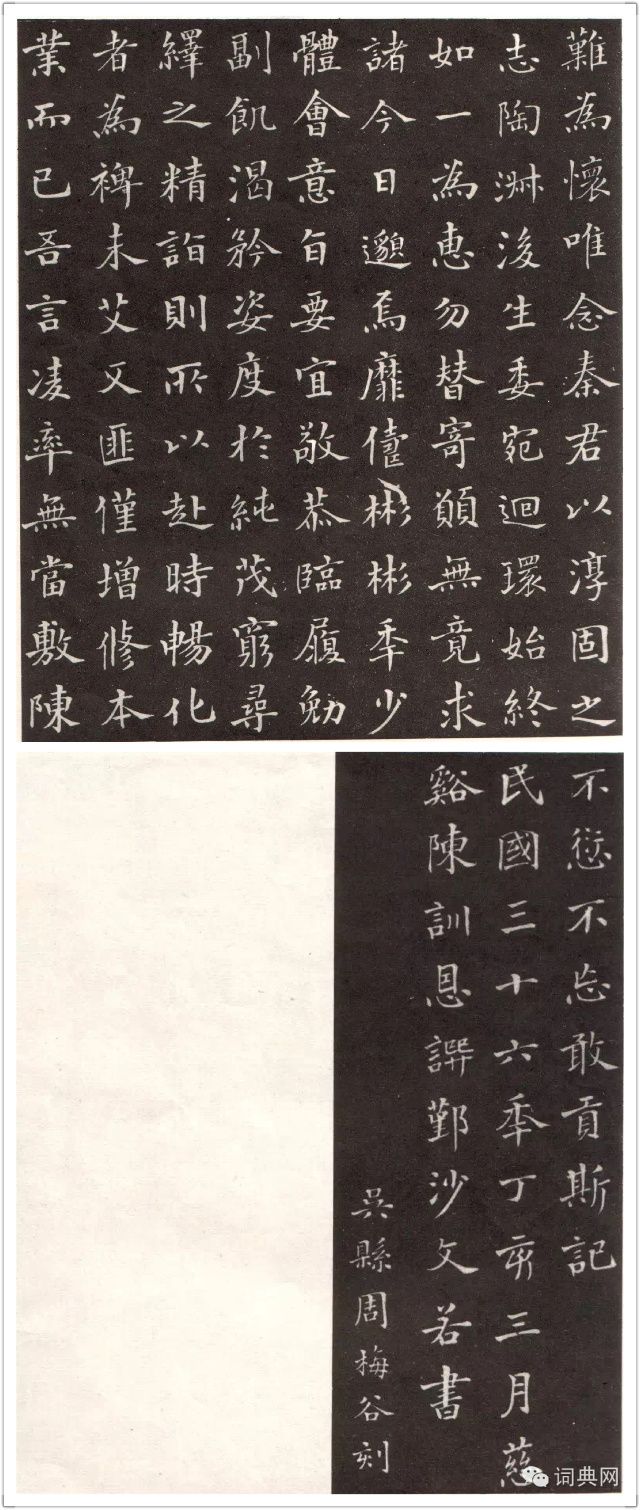 難為懷唯念秦君以淳固之
志陶淋後生委宛迴環始終
如一為惠勿替寄願無竟求
諸今日邈焉靡儔彬彬季少
體會意旨要宜敬恭臨履勉
副飢渴矜姿度於純茂窮尋
繹之精詣則所以赴時暢化
者為裨未艾又匪僅增修本
業而已吾言凌率無當敷陳
不愆不忘敢貢斯記
民國三十六年丁亥三月慈
谿陳訓恩譔鄞沙文若書
吳縣周梅谷刻
词典网